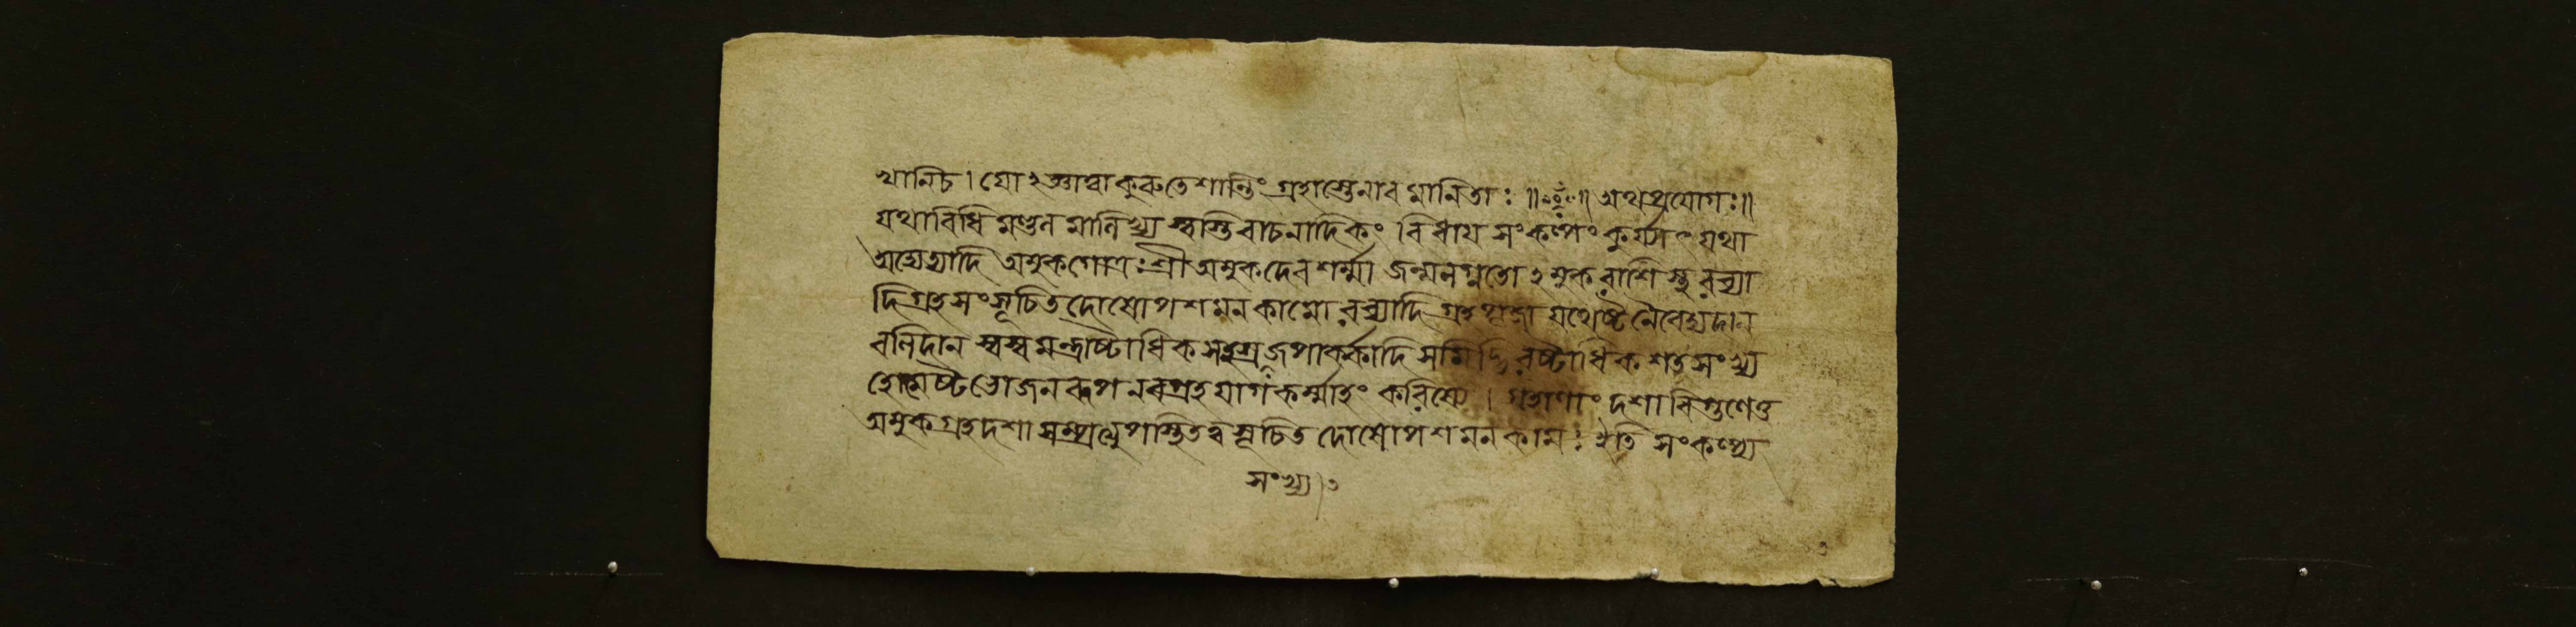 খানিচ। যোঽজ্ঞাত্বা কুরুতে শান্তিং গ্রহাস্তেনাবমানিতাঃ ॥ ॥ অথ প্রযোগঃ ॥
যথাবিধি মণ্ডলমালিখ্য স্বস্তিবাচনাদিকং বিধায সংকল্পং কুর্য্যাৎ যথা
অদ্যেত্যাদি অমুকগোত্রঃ শ্রী অমুকদেবশর্ম্মা জন্মলগ্নতোঽমুকরাশিস্থরব্যা
দিগ্রহসংসূচিতদোষোপশমনকামো রব্যাদিগ্রহপূজা যথেষ্টনৈবেদ্যদান
বলিদান স্বস্বমন্ত্রাষ্টাধিকসহস্রজপার্কাদিসমিদ্ভিরষ্টাধিকশতসংখ্য
হোমেষ্টভোজনরূপনবগ্রহযাগকর্ম্মাহং করিষ্যে। গ্রহাণাং দশাবিগুণেতু
অমুকগ্রহদশা সূচিতদোষোপশমনকামঃ ইতি সংকল্প্য
সংখ্য